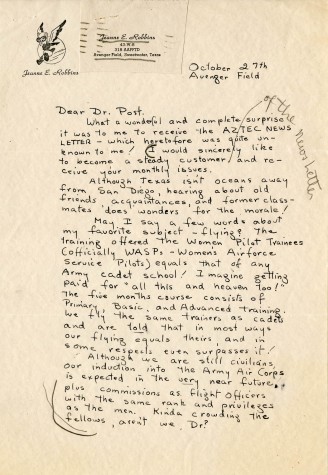 Jeanne E. Robbins
43-W-8
318 AAFFTD
Avenger Field, Sweetwater, Texas
Jeanne E. Robbins
October 27th
Avenger Field
Dear Dr. Post,
What a wonderful and complete surprise
it was to me to receive the AZTEC NEWS
LETTER - which heretofore was quite un-
known to me! I would sincerely like
to become a steady customer and re-
ceive your monthly issues.
of the news letter
Although Texas isn't oceans away
from San Diego, hearing about old
friends, acquaintances, and former class-
mates does wonders for the morale!
May I say a few words about
my favorite subject - flying? The
training offered the Women Pilot Trainees
(officially WASPs - Womens Airforce
Service Pilots) equals that of any
Army cadet school! Imagine getting
paid for "all this and heaven too!"
The five months course consists of
Primary, Basic, and Advanced training.
We fly the same trainers as cadets
and are told that in most ways
our flying equals theirs, and in
some respects even surpasses it!
Although we are still civilians,
our induction into the Army Air Corps
is expected in the very near future,
plus commissions as Flight Officers
with the same rank and privileges
as the men. Kinda crowding the
fellows, aren't we, Dr?